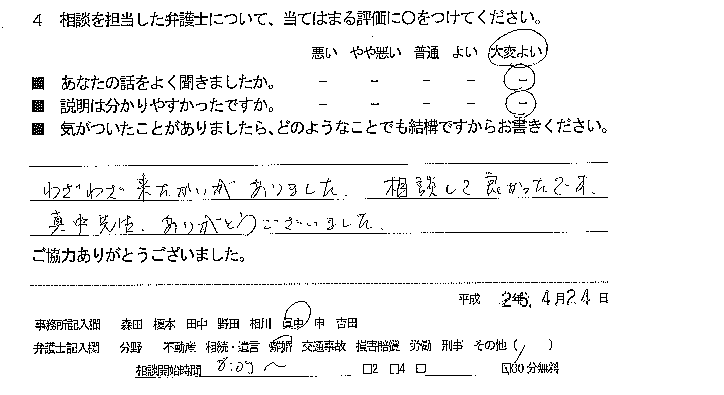 4 相談を担当した弁護士について、当てはまる評価に○をつけてください。
悪い やや悪い 普通 よい 大変よい
■ あなたの話をよく聞きましたか。 － － － － －
■ 説明は分かりやすかったですか。 － － － － －
■ 気がついたことがありましたら、どのようなことでも結構ですからお書きください。
わざわざ来たかいがありました。 相談して良かったです。
真中先生、ありがとうございました。
ご協力ありがとうございました。
平成 26. 4月24日
事務所記入欄 森田 榎本 田中 野田 相川 真中 申 吉田
弁護士記入欄 分野 不動産 相続・遺言 離婚 交通事故 損害賠償 労働 刑事 その他（ ）
相談開始時間 8:09 〜 □2 □4 □ 30分無料